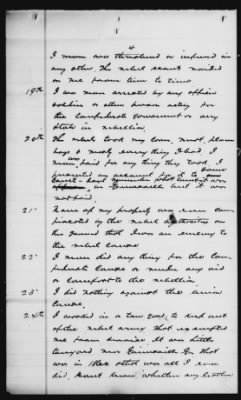 4
I never was threatened or injured in
any other. The rebel scouts raided
on me from time to time
19th I was never arrested by any officer
soldier or other person acting for
the Confederate government or any
State in rebellion.
20th The rebels took my corn, meat, plan
& most every thing I had. I
never was paid for any thing they took. I
presented an account for it to some
officer in Gainesville but it was
not paid.
21st None of my property was ever con-
fiscated by the rebel authorities on
the ground that I was an enemy to
the rebel cause
22d I never did any thing for the con-
federate cause or rendered any aid
or comfort to the rebellion
23d I did nothing against the union
Cause.
24th I worked in a tan yard to keep out
of the rebel army that exempted
me from service. It was
tanyard near Gainesville Ga. that
was in 1862 that was all I ever
did, don't know whether any leather